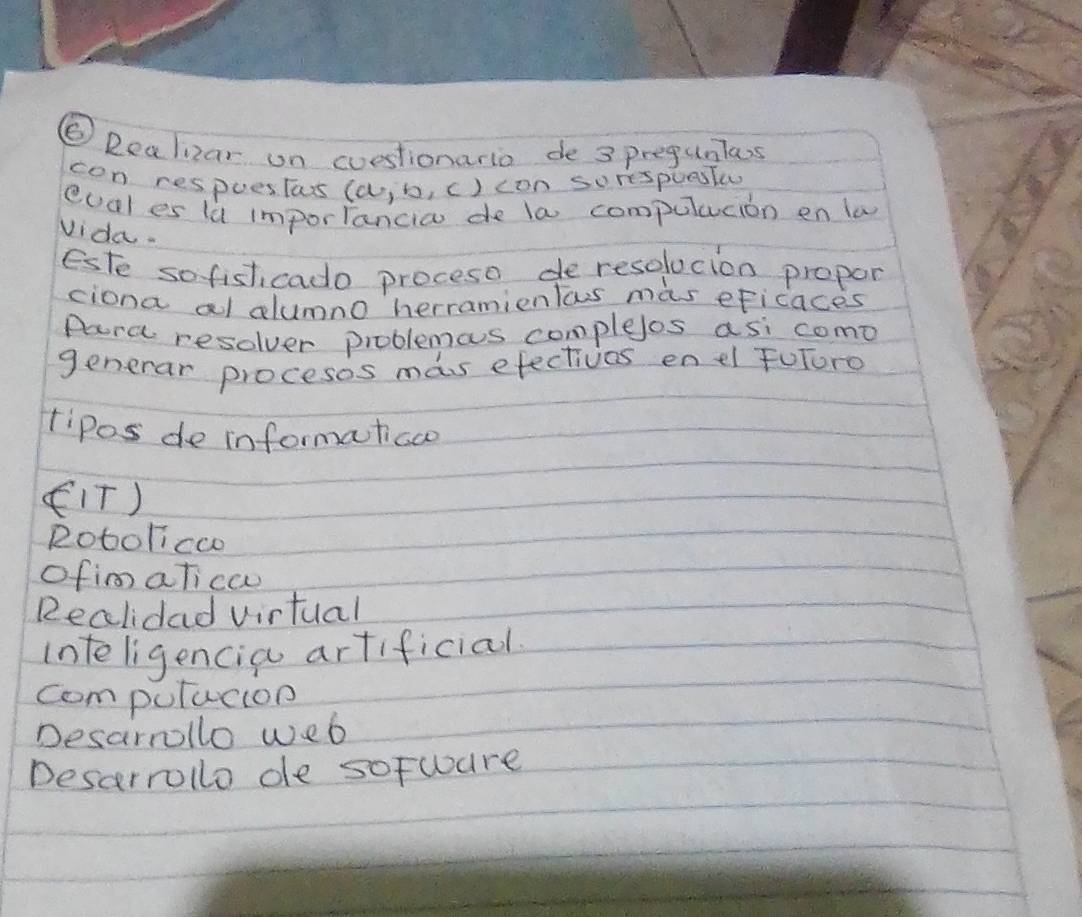 ⑥ Realizar un cuestionario de 3 preguntas
con respuestas (a, b, c) con su respuesta
cual es la importancia de la computación en la
vida.
Este sofisticado proceso de resolución propor
ciona al alumno herramientas más eficaces
para resolver problemas complejos asi como
generar procesos más efectivos en el Futuro
tipos de informatica
(IT)
Robotica
Ofimatica
Realidad virtual
inteligencia artificial.
computacion
Desarrollo web
Desarrollo de sofware